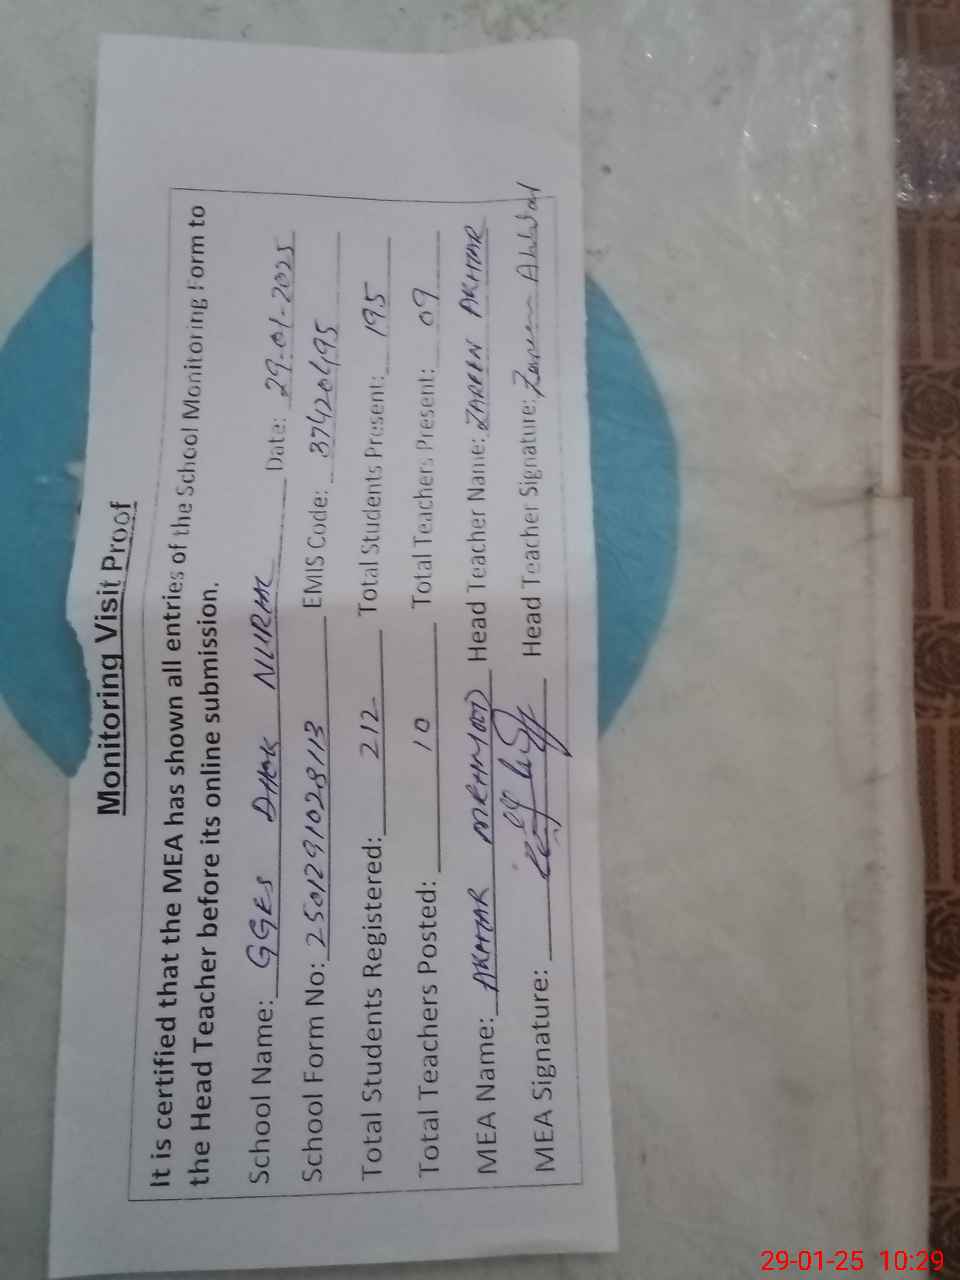 Monitoring Visit Proof
It is certified that the MEA has shown all entries of the School Monitoring Form to
the Head Teacher before its online submission.
School Name: GGES DHOK NURHC Date: 29-01-2025
School Form No: 2501291028113 EMIS Code: 37420495
Total Students Registered: 212 Total Students Present: 195
Total Teachers Posted: 10 Total Teachers Present: 09
MEA Name: AKHTAR MEHMOOD Head Teacher Name: ZAREEN AKHTAR
MEA Signature: Head Teacher Signature: Zareen Akhtar
29-01-25 10:29